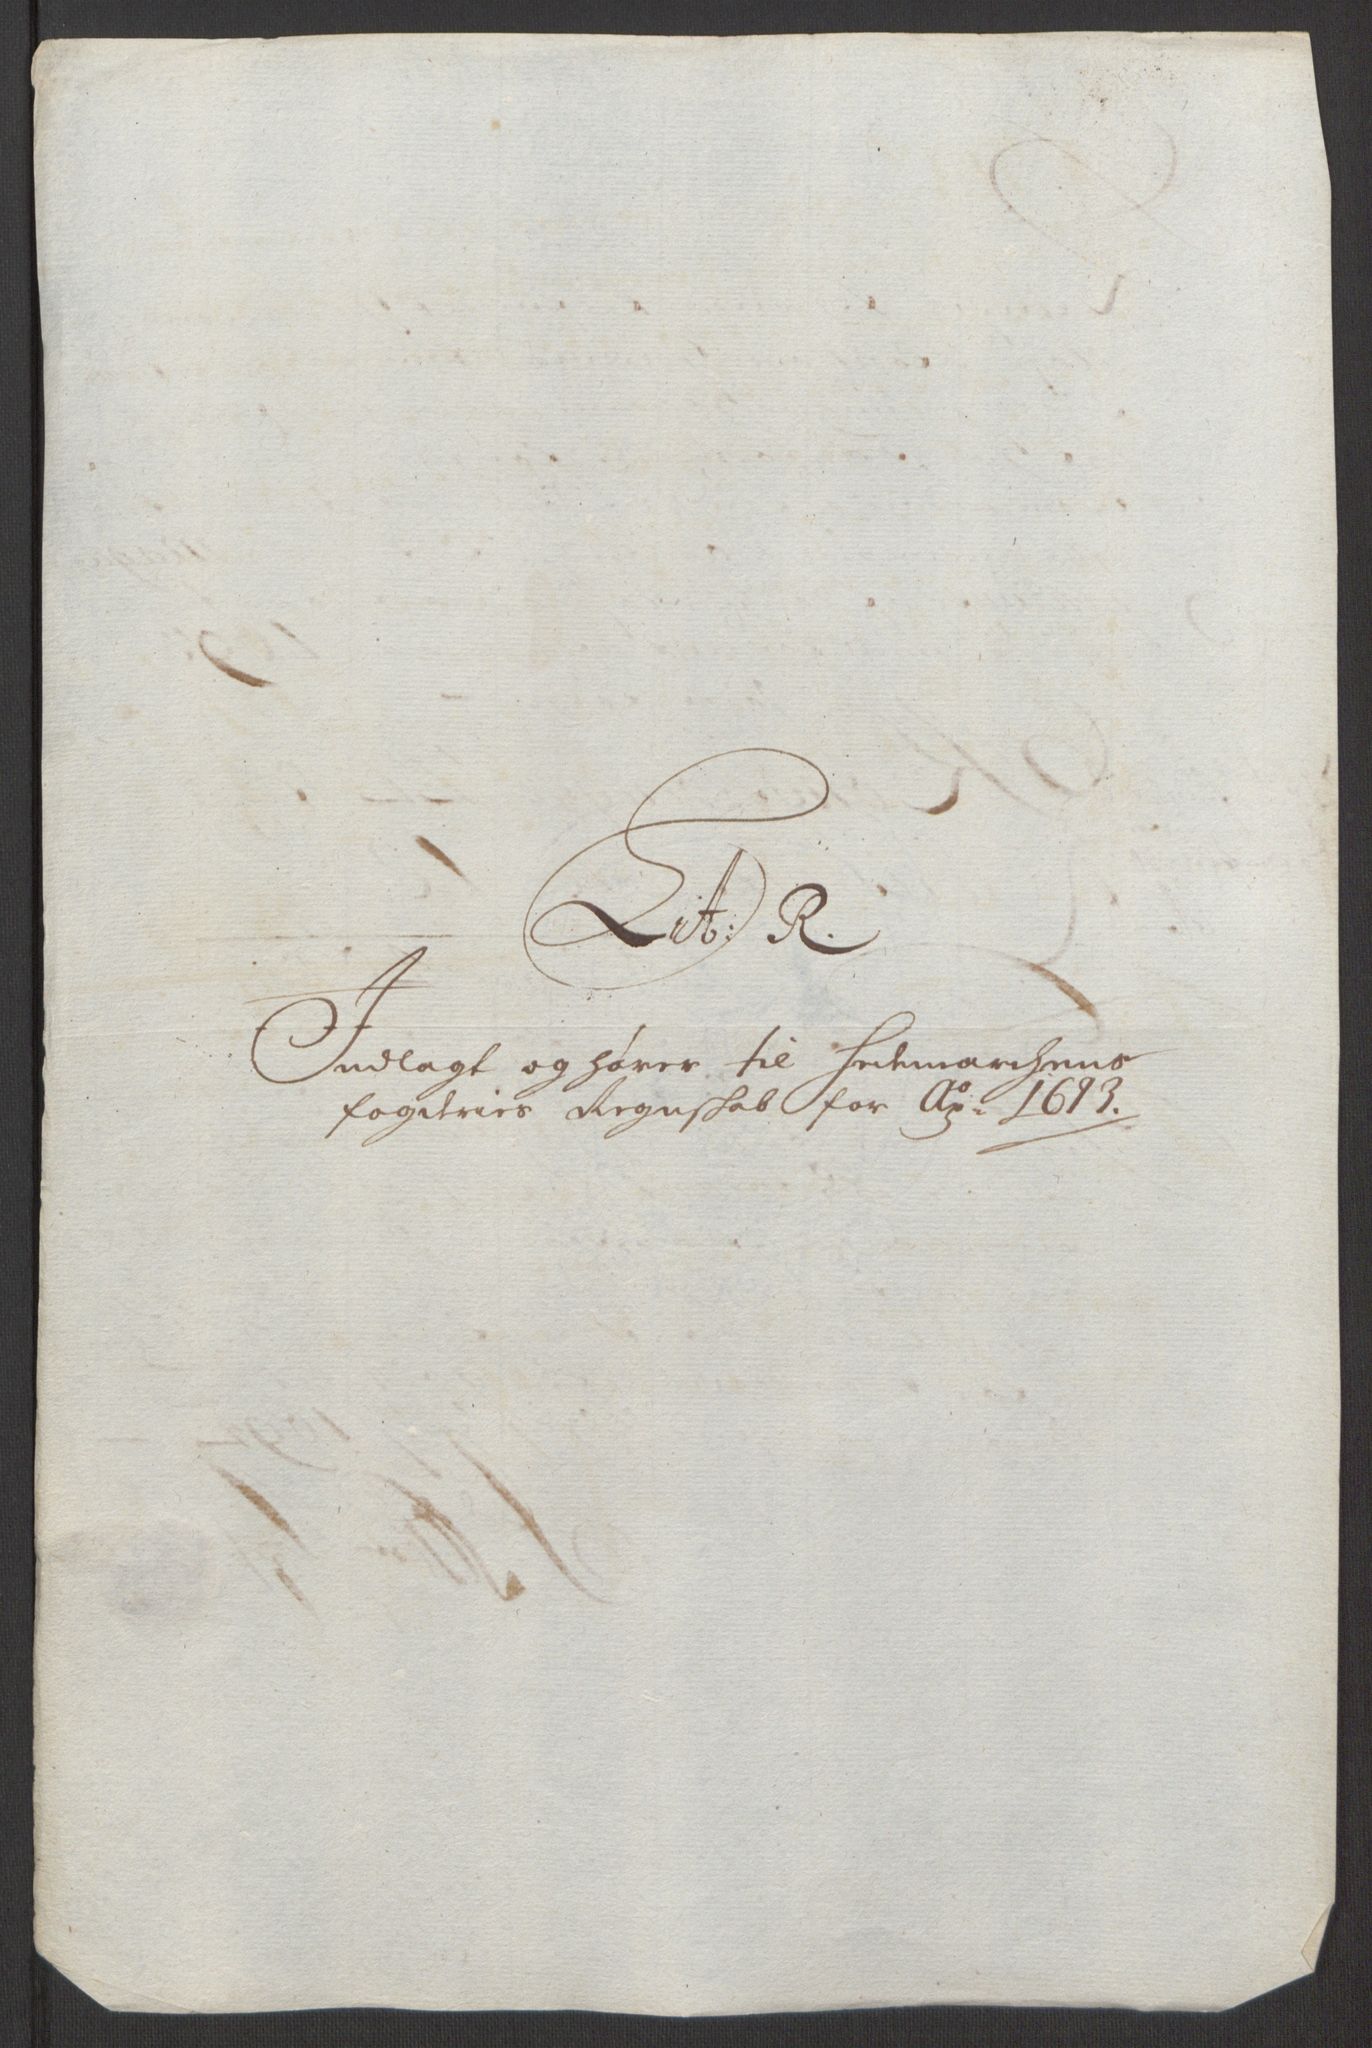 Lit: R.
Indlagt og hører til Hedemarchens
fogdries Regnskab for Ao: 1693.